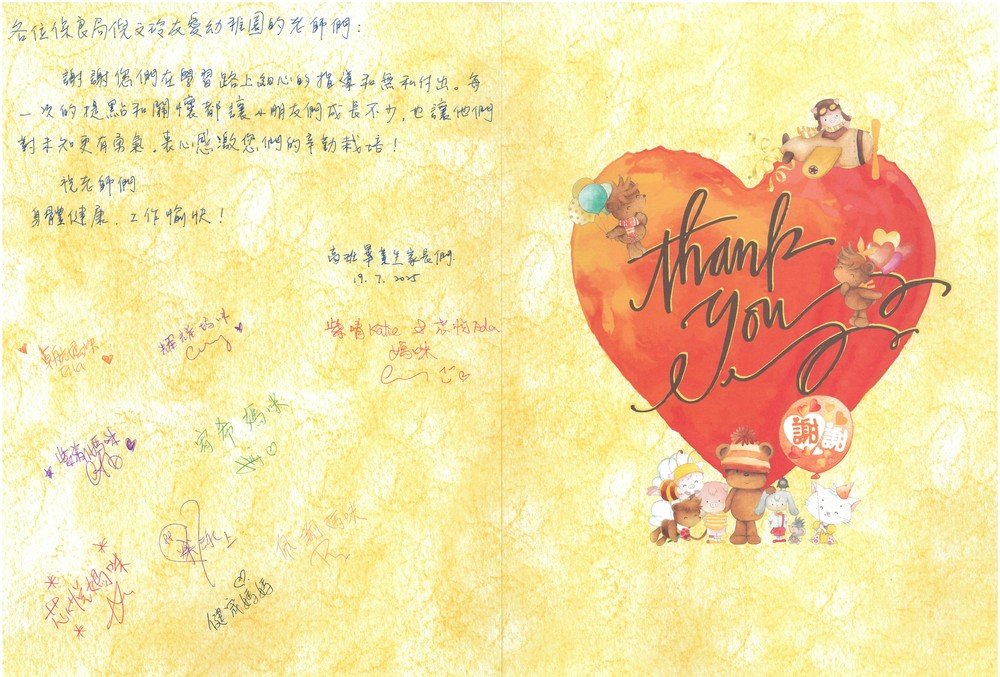 各位保良局倪文玲友愛幼班園的老師們:
謝謝您們在學習路上細心的指導和無私付出。每
一次的提點和關懷都讓小朋友們成長不少,也讓他們
對未知更有勇氣。衷心感激您們的辛勤栽培!
祝老師們
身體健康,工作愉快!
高班畢業生家長們
19.7.2025
媽咪
紫晴Katie 及 Ada
媽咪
媽咪
媽咪
芯悦媽咪
上
媽咪
健宬媽媽
thank
you
謝謝